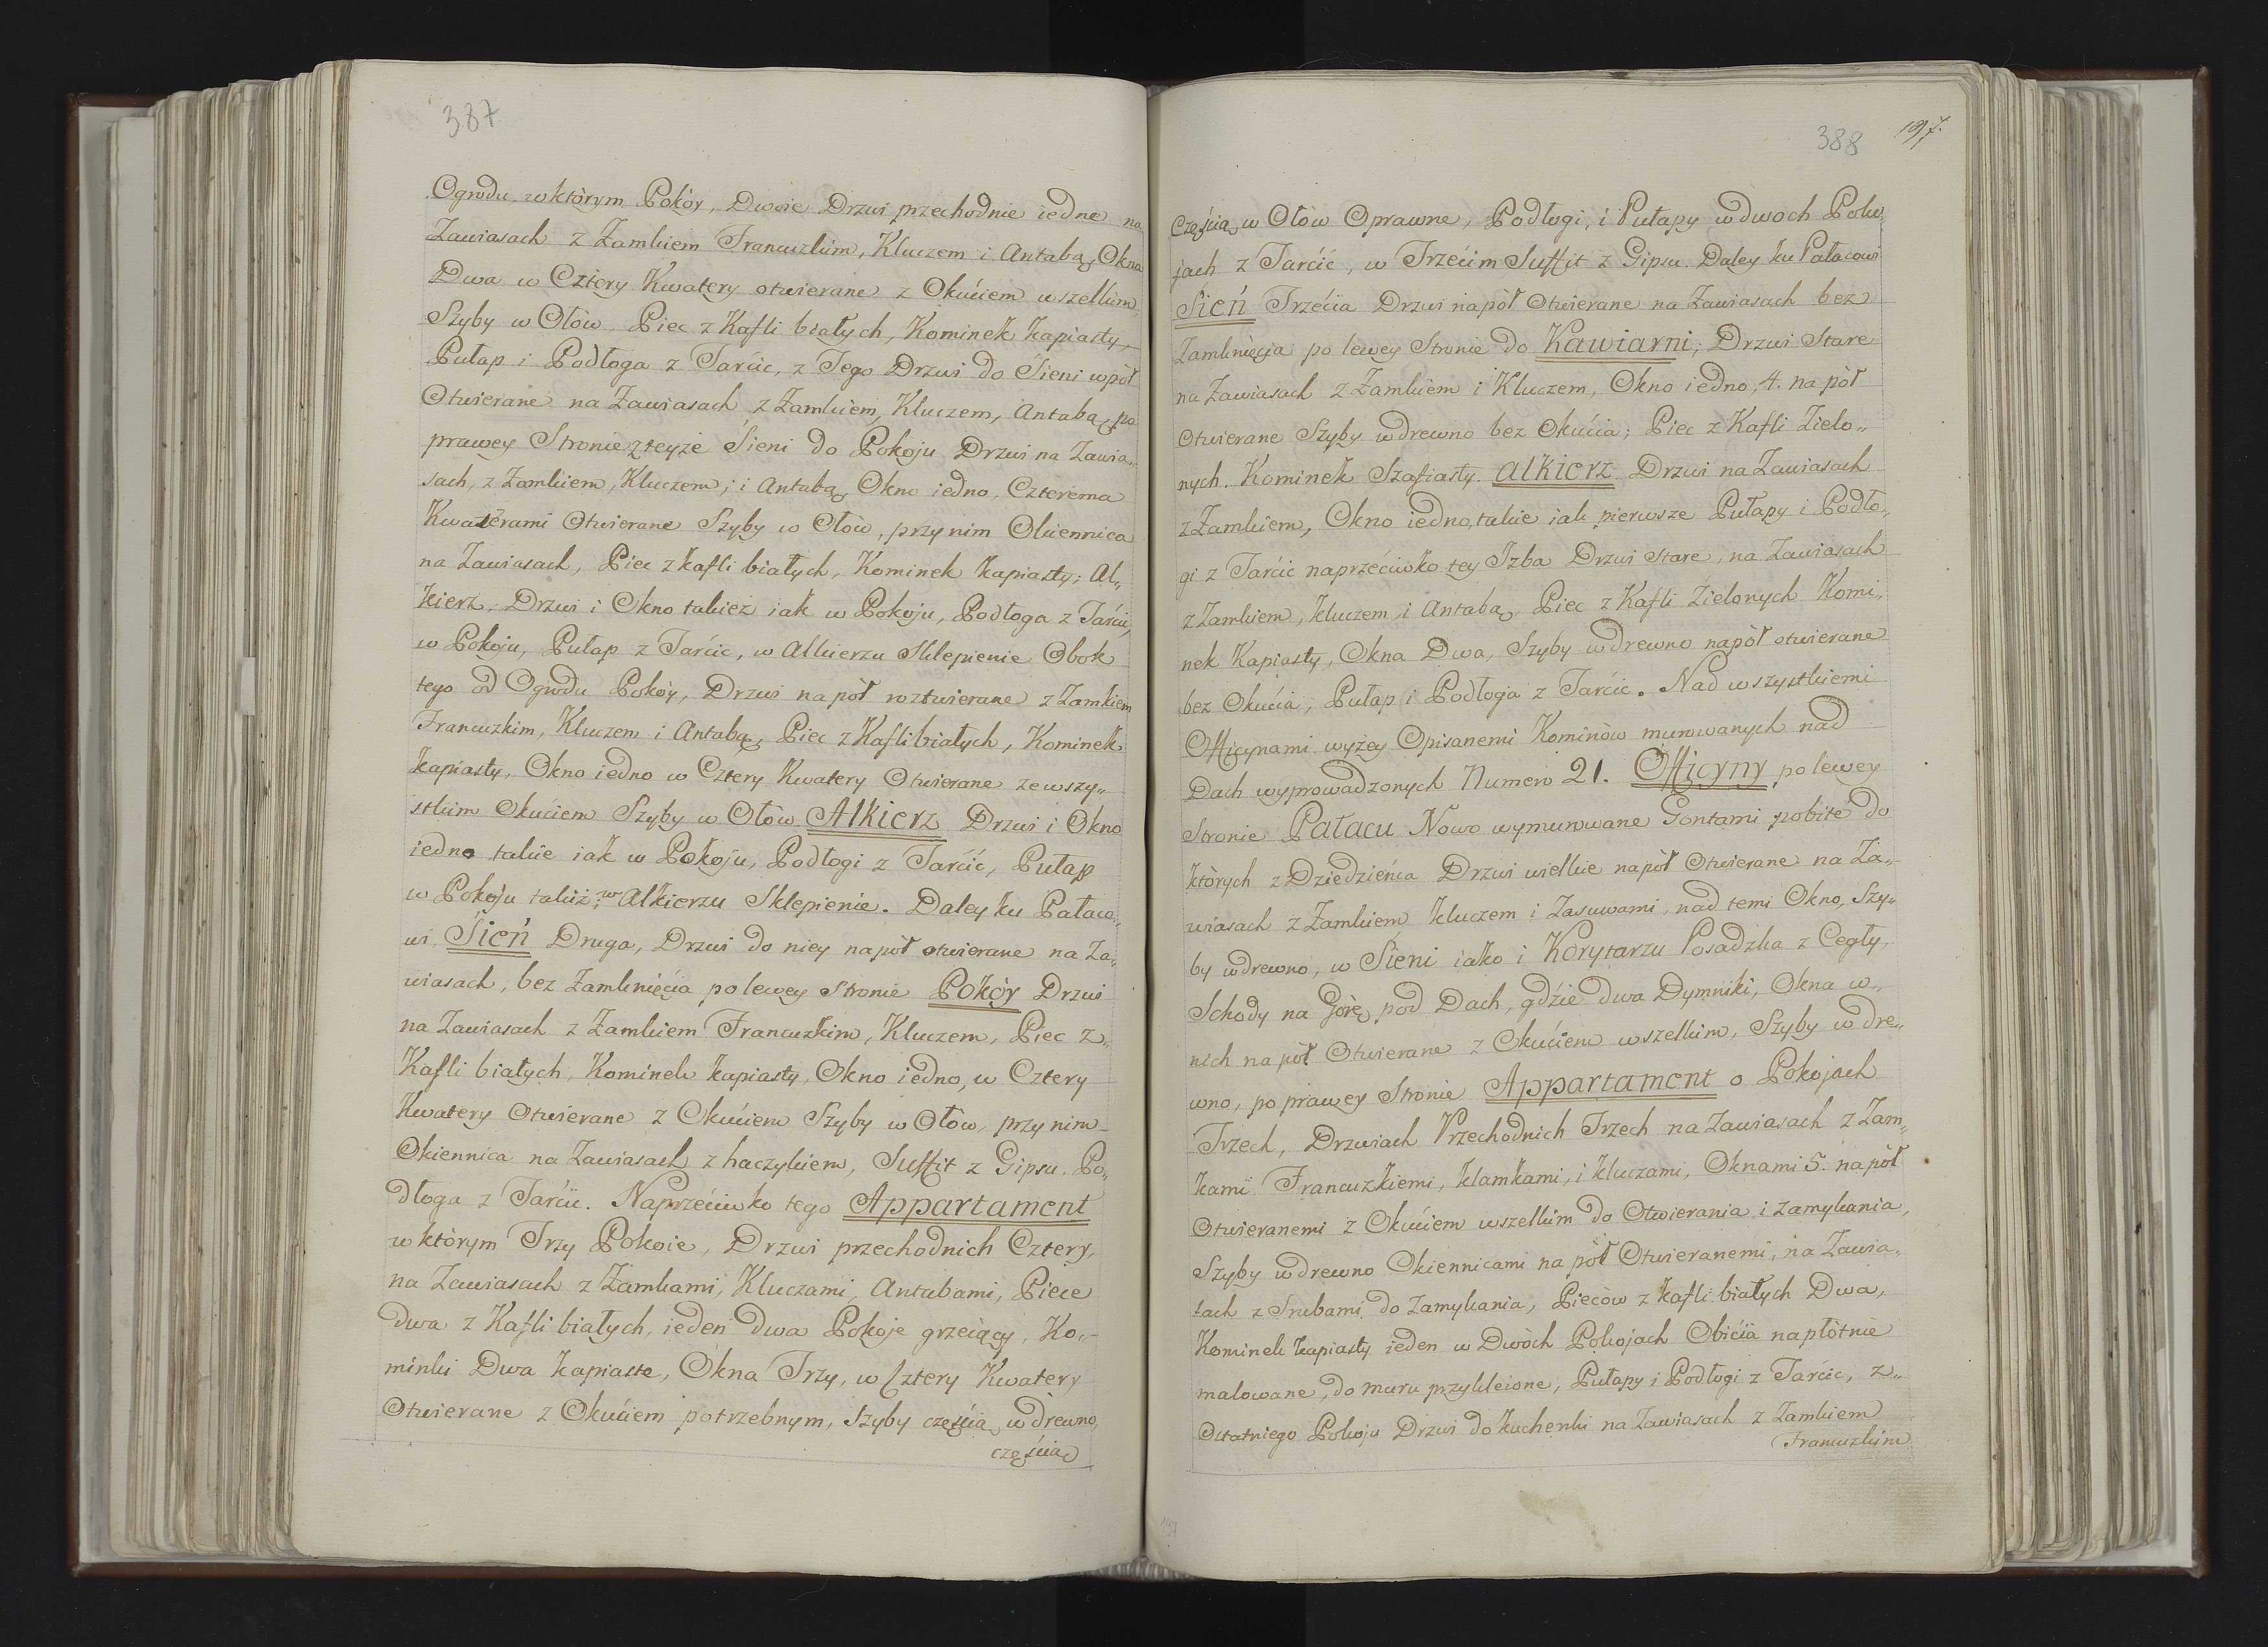 387
Ogrodu, w którym Pokóy, Dwoie Drzwi przechodnie iedne na
Zawiasach z Zamkiem Francuzkim, Kluczem i Antabą, Okna
Dwa w Cztery Kwatery otwierane z Okuciem wszelkim
Szyby w Ołów, Piec z Kafli białych, Kominek kapiasty,
Pułap i Podłoga z Tarcic, z Tego Drzwi do Sieni wpół
Otwierane na Zawiasach z Zamkiem, Kluczem, Antabą, po
prawey Stronie z teyże Sieni do Pokoju Drzwi na Zawia„
sach, z Zamkiem, Kluczem, i Antabą Okno iedno, Czterema
Kwaterami Otwierane Szyby w Ołów, przy nim Okiennica
na Zawiasach, Piec z kafli białych, Kominek kapiasty; Al„
kierz, Drzwi i Okno takież iak w Pokoju, Podłoga z Tarcic,
w Pokoju, Pułap z Tarcic, w Alkierzu Sklepienie Obok
tego od Ogrodu Pokóy, Drzwi na pół roztwierane z Zamkiem
Francuzkim, Kluczem i Antabą, Piec z Kafli białych, Kominek
kapiasty, Okno iedno w Cztery Kwatery Otwierane ze wszy„
stkim Okuciem Szyby w Ołów Alkierz Drzwi i Okno
iedno takie iak w Pokoju, Podłogi z Tarcic, Pułap
w Pokoju takiż, w Alkierzu Sklepienie. Daley ku Pałaco„
wi, Sień Druga, Drzwi do niey na pół otwierane na Za„
wiasach, bez Zamknięcia po lewey stronie Pokóy Drzwi
na Zawiasach z Zamkiem Francuzkim, Kluczem, Piec z„
Kafli białych, Kominek kapiasty, Okno iedno, w Cztery
Kwatery Otwierane z Okuciem Szyby w Ołów, przy nim
Okiennica na Zawiasach z haczykiem, Suffit z Gipsu, Po„
dłoga z Tarcic. Naprzeciwko tego Appartament
w którym Trzy Pokoie, Drzwi przechodnich Cztery,
na Zawiasach z Zamkami, Kluczami, Antabami, Piece
dwa z Kafli białych, ieden dwa Pokoje grzeiący, Ko„
minki Dwa kapiaste, Okna Trzy, w Cztery Kwatery
Otwierane z Okuciem potrzebnym, Szyby częścią w drewno,
częścią
388
197.
Częścią w Ołów Oprawne, Podłogi, i Pułapy w dwoch Poko„
jach z Tarcic, w Trzecim Suffit z Gipsu. Daley ku Pałacowi
Sień Trzecia Drzwi na pół Otwierane na Zawiasach bez
Zamknięcia po lewey Stronie do Kawiarni; Drzwi Stare
na Zawiasach z Zamkiem i Kluczem, Okno iedno, 4. na pół
Otwierane Szyby w drewno bez Okucia; Piec z Kafli Zielo„
nych. Kominek Szafiasty. Alkierz Drzwi na Zawiasach
z Zamkiem, Okno iedno, takie iak pierwsze Pułapy i Podło„
gi z Tarcic naprzeciwko tey Izba Drzwi Stare, na Zawiasach
z Zamkiem, kluczem, i Antabą, Piec z Kafli Zielonych Komi„
nek Kapiasty, Okna Dwa, Szyby w drewno na pół otwierane
bez Okucia, Pułap i Podłoga z Tarcic. Nad wszystkiemi
Officynami wyżey Opisanemi Kominów murowanych nad
Dach wyprowadzonych Numero 21. Officyny po lewey
Stronie Pałacu Nowo wymurowane Gontami pobite do
których z Dziedzieńca Drzwi wielkie na pół Otwierane na Za„
wiasach z Zamkiem kluczem i Zasuwami, nad temi Okno, Szy„
by w drewno, w Sieni iako i Korytarzu Posadzka z Cegły,
Schody na Górę, pod Dach, gdzie dwa Dymniki, Okna w„
nich na pół Otwierane z Okuciem wszelkim, Szyby w dre„
wno, po prawey Stronie Appartament o Pokojach
Trzech, Drzwiach Przechodnich Trzech na Zawiasach z Zam„
kami Francuzkiemi, klamkami, i kluczami, Oknami 5. na pół
Otwieranemi z Okuciem wszelkim do Otwierania i zamykania,
Szyby w drewno Okiennicami na pół Otwieranemi, na Zawia„
sach z Srubami do zamykania, Pieców z kafli białych Dwa,
Kominek kapiasty ieden w Dwóch Pokojach Obicia na płótnie
malowane, do muru przykleione, Pułapy i Podłogi z Tarcic, z„
Ostatniego Pokoju Drzwi do kuchenki na Zawiasach z Zamkiem
Francuzkim
197